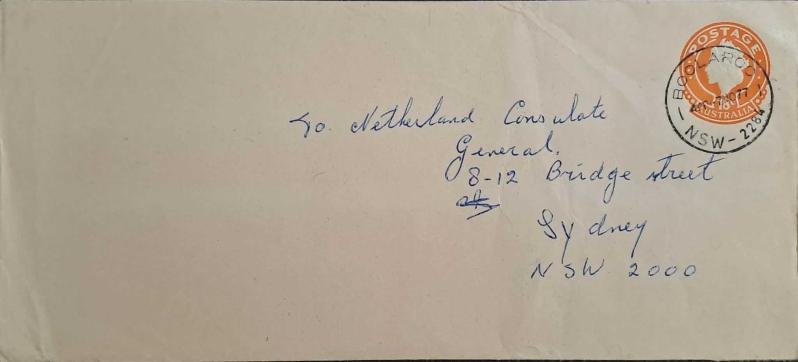 POSTAGE
18c
AUSTRALIA
BOOLAROO
NSW - 2284
To. Netherland Consulate
General.
8-12 Bridge street
Sydney
NSW 2000